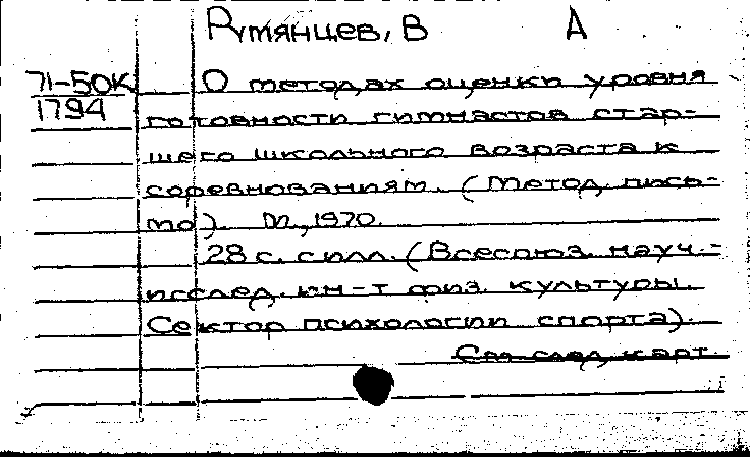 Румянцев, В А
71-50К О методах оценки уровня
1794 готовности гимнастов стар-
шего школьного возраста к
соревнованиям. (Метод. пись-
мо). М., 1970.
28 с. с илл. (Всесоюз. науч.-
исслед. ин-т физ. культуры.
Сектор психологии спорта).
См. след. карт.